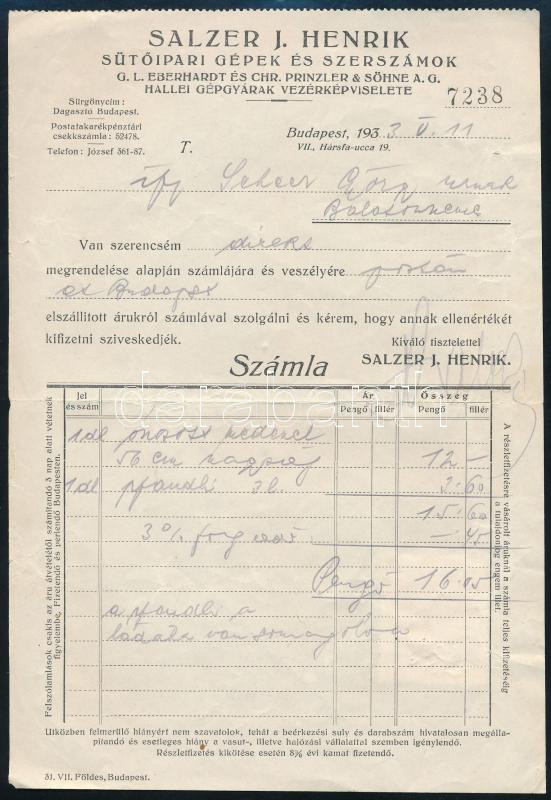 SALZER J. HENRIK
SÜTŐIPARI GÉPEK ÉS SZERSZÁMOK
G. L. EBERHARDT ÉS CHR. PRINZLER & SÖHNE A. G.
HALLEI GÉPGYÁRAK VEZÉRKÉPVISELETE
7238
Sürgönycím:
Dagasztó Budapest.
Postatakarékpénztári
csekkszámla: 52478.
Telefon: József 361-87.
T.
Budapest, 1933 V. 11
VII., Hársfa-ucca 19.
ifj úrnak
Van szerencsém direkt
megrendelése alapján számlájára és veszélyére postán
ex Budapest
elszállitott árukról számlával szolgálni és kérem, hogy annak ellenértékét
kifizetni sziveskedjék.
Kiváló tisztelettel
SALZER J. HENRIK.
Számla
Jel és szám
Ár
Pengő fillér
Összeg
Pengő fillér
1 db öntött
56 cm 12 —
1 db pfandli 3 l. 3.60
15.60
3% forg. adó —.45
Pengő 16.05
a pfandli a
ládába van csomagolva
Felszólamlások csakis az áru átvételétől számitandó 3 nap alatt vétetnek
figyelembe. Fizetendő és perlendő Budapesten.
A részletfizetésre vásárolt áruknál a számla teljes kifizetéséig
a tulajdonjog engem illet.
Utközben felmerülő hiányért nem szavatolok, tehát a beérkezési suly és darabszám hivatalosan megálla-
pitandó és esetleges hiány a vasut-, illetve hajózási vállalattal szemben igénylendő.
Részletfizetés kikötése esetén 8% évi kamat fizetendő.
31. VII. Földes, Budapest.
darabanth